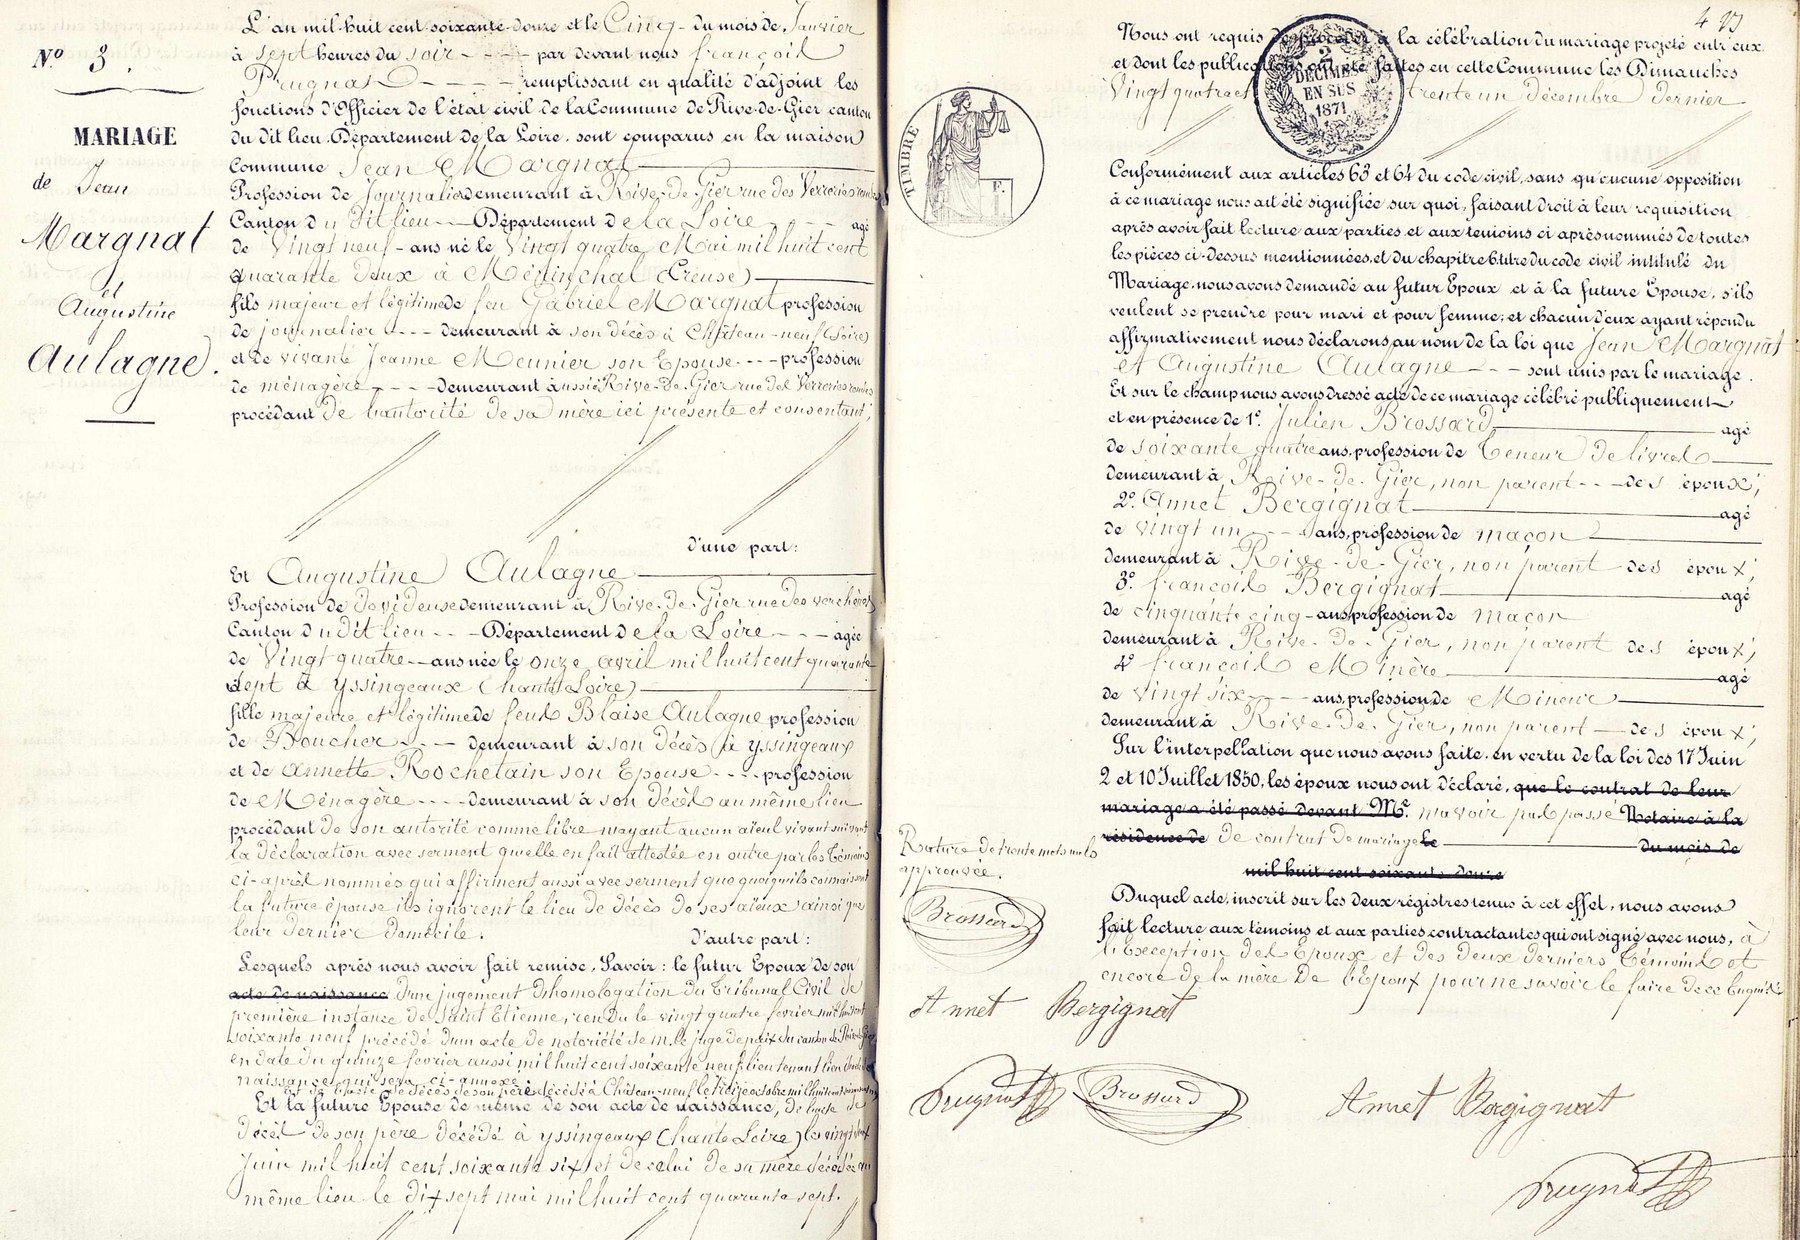 L'an mil-huit cent soixante-douze et le Cinq - du mois de Janvier
à sept heures du soir - - - par devant nous françois
Prugnat - - - remplissant en qualité d'adjoint les
fonctions d'Officier de l'état civil de la Commune de Rive-de-Gier canton
du dit lieu, Département de la Loire, sont comparus en la maison
Commune Jean Margnat
Profession de Journalier demeurant à Rive-de-Gier rue des Verreries
Canton du dit lieu - Département de la Loire - - - agé
de Vingt neuf - ans né le Vingt quatre Mai mil huit cent
quarante deux à Mérinchal (Creuse)
fils majeur et légitime de feu Gabriel Margnat profession
de journalier - - - demeurant à son décès à Château-neuf (Loire)
et de vivante Jeanne Meunier son Epouse - - - profession
de ménagère - - - demeurant aussi à Rive-de-Gier rue des Verreries
procédant de l'autorité de sa mère ici présente et consentant;
d'une part:
Et Augustine Aulagne
Profession de dévideuse demeurant à Rive-de-Gier rue des verchères
Canton du dit lieu - - - Département de la Loire - - - agée
de Vingt quatre - ans née le onze avril mil huit cent quarante
sept à yssingeaux (haute Loire)
fille majeure et légitime de feus Blaise Aulagne profession
de Boucher - - - demeurant à son décès à yssingeaux
et de annette Rochetain son Epouse - - - profession
de Ménagère - - - demeurant à son décès au même lieu
procédant de son autorité comme libre n'ayant aucun aïeul vivant suivant
la déclaration avec serment qu'elle en fait attestée en outre par les témoins
ci-après nommés qui affirment aussi avec serment que quoiqu'ils connaissent
la future épouse ils ignorent le lieu de décès de ses aïeux ainsi que
leur dernier domicile.
d'autre part:
Lesquels après nous avoir fait remise, Savoir: le futur Epoux de son
acte de naissance d'un jugement d'homologation du Tribunal Civil de
première instance de Saint Etienne, rendu le vingt quatre février mil huit cent
soixante neuf précédé d'un acte de notoriété de m. le juge de paix du canton de Rive de Gier
en date du quinze février aussi mil huit cent soixante neuf lieu tenant lieu d'acte de
naissance qui sera ci-annexé
et de l'acte de décès de son père décédé à Château-neuf le treize octobre mil huit cent
Et la future Epouse de même de son acte de naissance, de l'acte de
décès de son père décédé à yssingeaux (haute Loire) le vingt deux
Juin mil huit cent soixante six et de celui de sa mère décédée au
même lieu le dix sept mai mil huit cent quarante sept.
No 3.
MARIAGE
de Jean
Margnat
et
Augustine
Aulagne.
Nous ont requis de procéder à la célébration du mariage projeté entr'eux
et dont les publications ont été faites en cette Commune les Dimanches
Vingt quatre et trente un décembre dernier
2
DÉCIMES
EN SUS
1871
TIMBRE
F.
Conformément aux articles 63 et 64 du code civil, sans qu'aucune opposition
à ce mariage nous ait été signifiée sur quoi, faisant droit à leur requisition
après avoir fait lecture aux parties et aux temoins ci après nommés de toutes
les pièces ci-dessus mentionnées, et du chapitre 6 titre du code civil intitulé du
Mariage, nous avons demandé au futur Epoux et à la future Epouse, s'ils
veulent se prendre pour mari et pour femme; et chacun d'eux ayant répondu
affirmativement nous déclarons, au nom de la loi que Jean Margnat
et Augustine Aulagne - - - sont unis par le mariage.
Et sur le champ nous avons dressé acte de ce mariage célébré publiquement
et en présence de 1o. Julien Brossard agé
de soixante quatre ans, profession de teneur de livres
demeurant à Rive-de-Gier, non parent - - des époux;
2o. Annet Bergignat agé
de vingt un - - - ans, profession de maçon
demeurant à Rive-de-Gier, non parent des époux;
3o. françois Bergignat agé
de cinquante cinq - ans, profession de maçon
demeurant à Rive-de-Gier, non parent des époux;
4o françois Minère agé
de vingt six - - - ans, profession de Mineur
demeurant à Rive-de-Gier, non parent - des époux;
Sur l'interpellation que nous avons faite en vertu de la loi des 17 Juin
2 et 10 Juillet 1850, les époux nous ont déclaré, que le contrat de leur
mariage a été passé devant Me. n'avoir pas passé Notaire à la
résidence de de contrat de mariage le du mois de
mil huit cent soixante douze
Duquel acte, inscrit sur les deux régistres tenus à cet effet, nous avons
fait lecture aux témoins et aux parties contractantes qui ont signé avec nous, à
l'exception des Epoux et des deux derniers témoins et
encore de la mère de l'Epoux pour ne savoir le faire de ce enquis
Rature de trente mots nuls
approuvée.
Brossard
Annet Bergignat
Prugnat Brossard Annet Bergignat
Prugnat